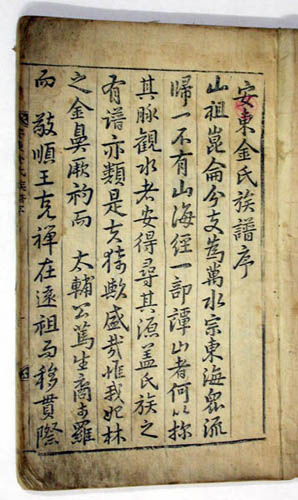 安東金氏族譜序
山祖崑侖分支萬水宗東海衆流
歸一不有山海經一部譚山者何以採
其脉觀水者安得尋其源盖氏族之
有譜亦類是夫猗歟盛哉惟我妃林
之金鼻厥初而 太輔公篤生商于羅
而 敬順王克禪在遠祖而移貫際